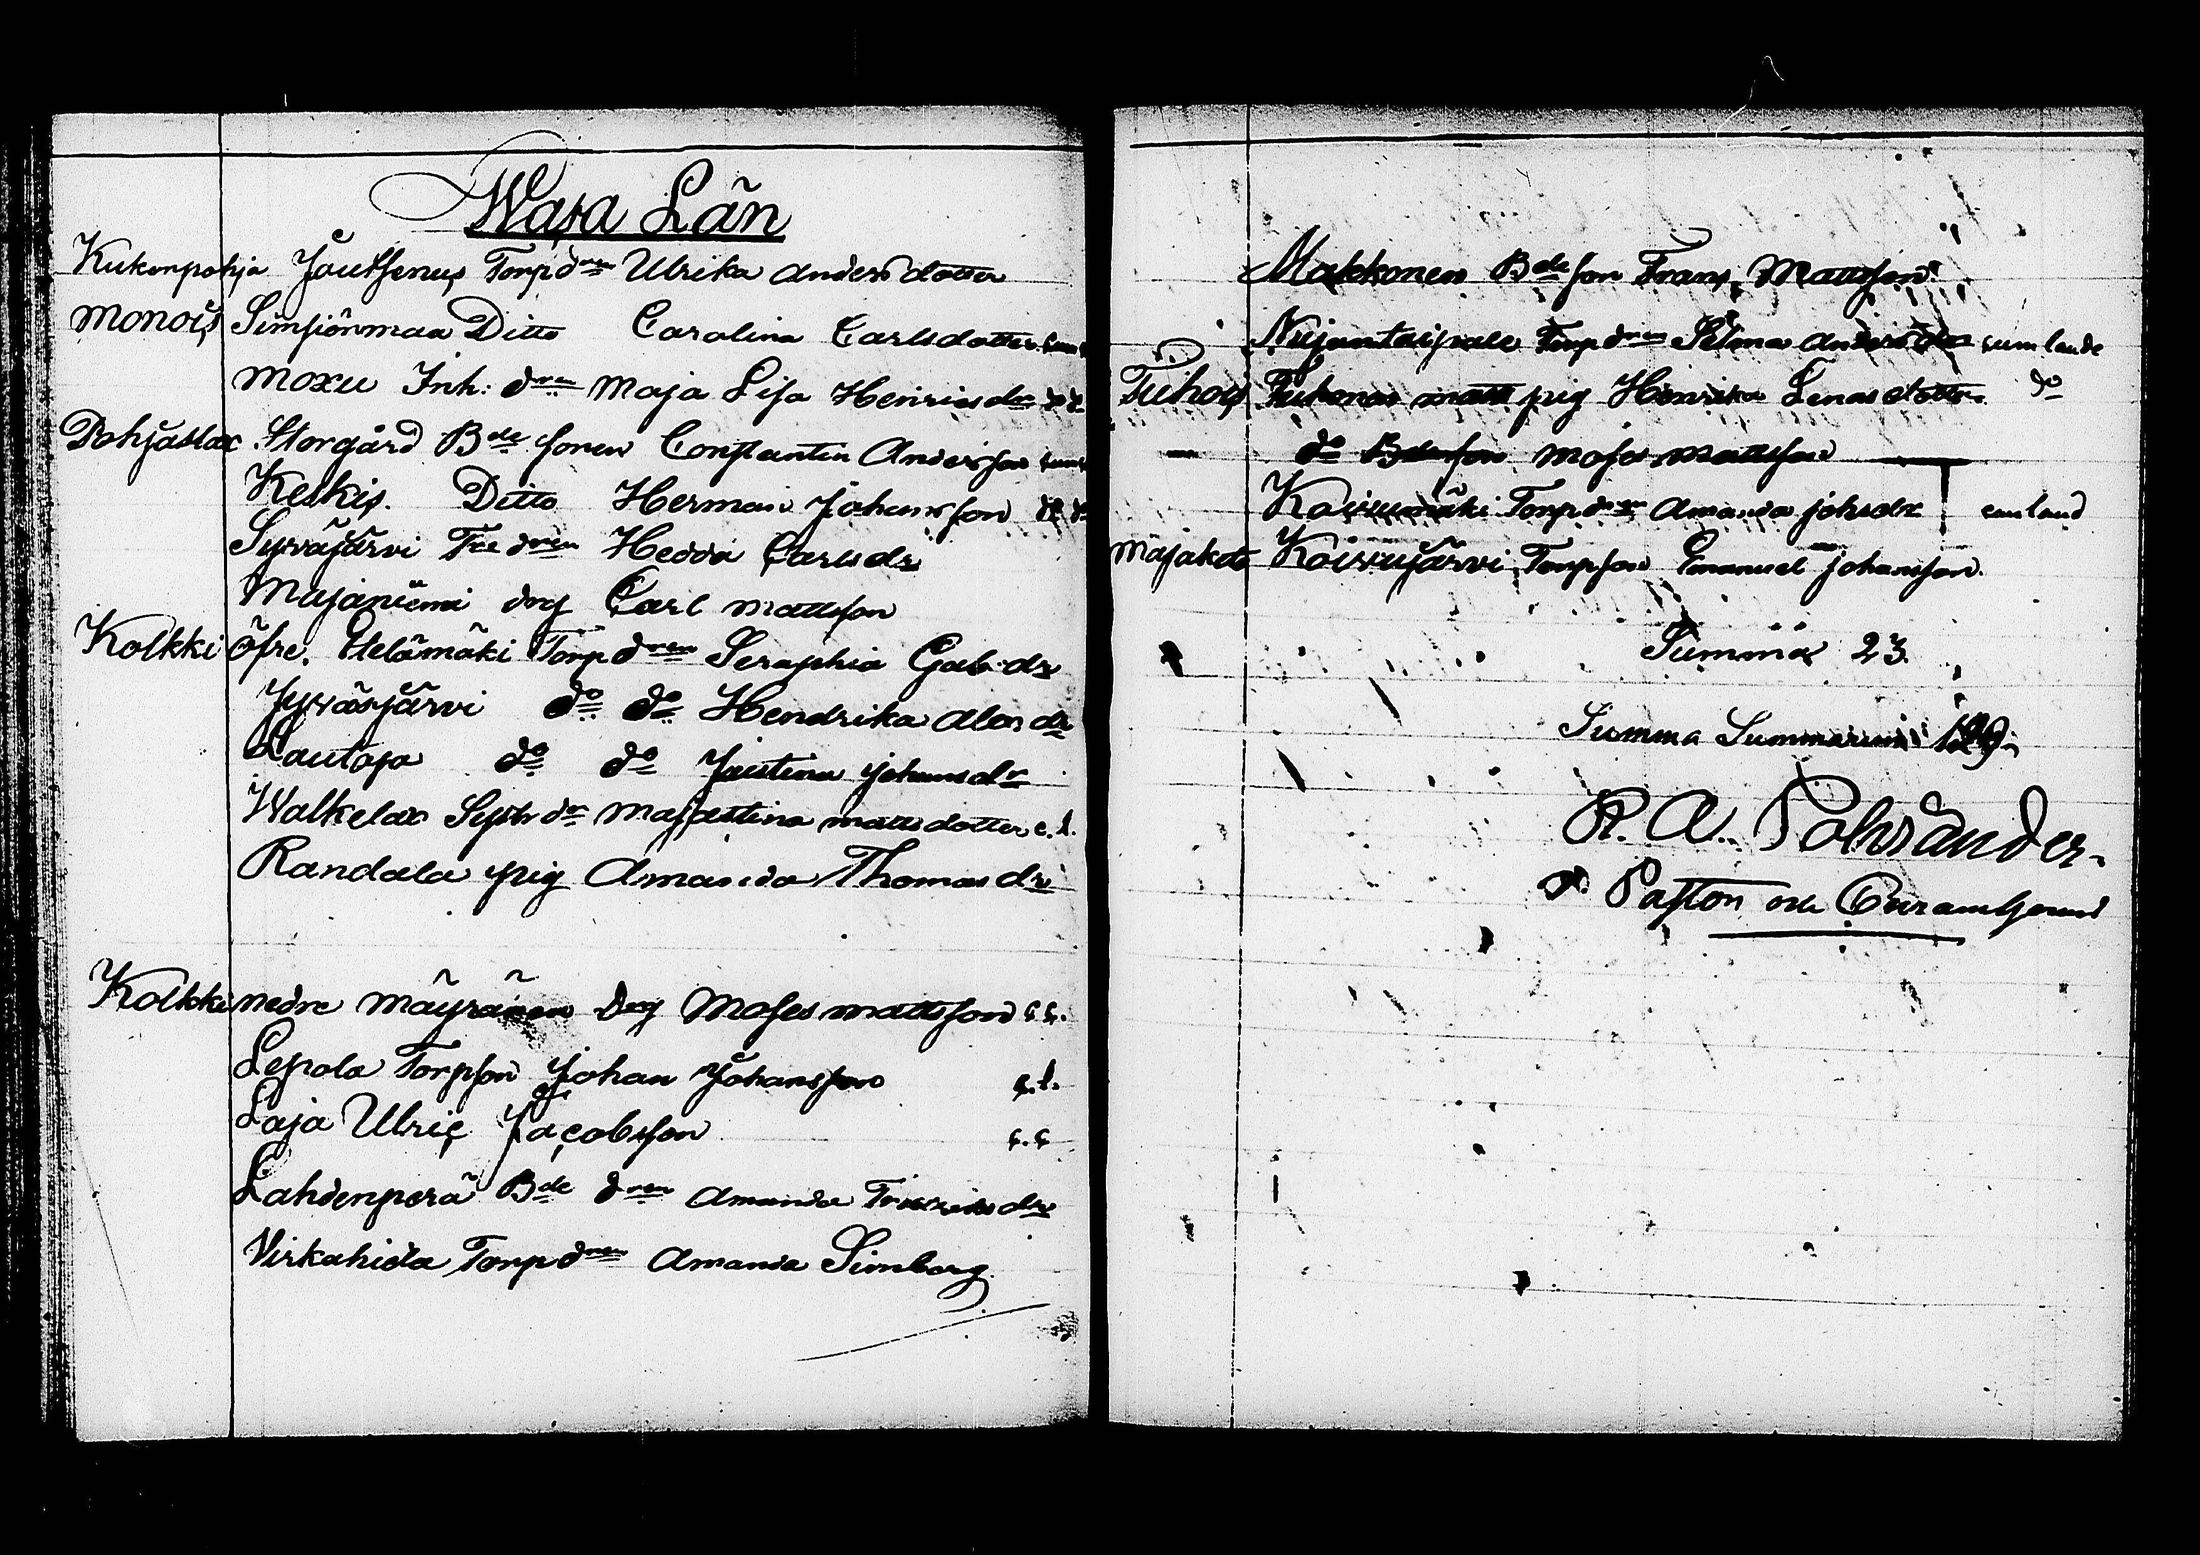 Wasa Län
Kukonpohja Joutsenus Torpdren Ulrika Andersdotter
Monois Simsiönmaa Ditto Carolina Carlsdotter
Moxu Inh: dren Maja Lisa Henricsdr
Pohjaslax Storgård Bde sonen Constantin Andersson
Keskis. Ditto Herman Johansson do do
Syväjärvi dren Hedda Carlsdr
Majaniemi drg Carl Mattsson
Kolkki öfre. Helämäki Torpdren Seraphia Gab:dr
Jyväsjärvi do do Hendrika dr
Lautaja do do Justina Johansdr
Walkelax dr Majastina Mattsdotter c. l.
Randala pig Amanda Thomasdr
Kolkki nedre Mäyränen drg Moses Mattsson c.c.
Lepola Torpson Johan Johansson c.l.
Laja Ulric Jacobsson c.c
Lahdenperä Bde dren Amanda dr
Virkahida Torpdren Amanda Simberg
Makkonen Bde son Frans Mattsson
Torpdren Selma Andersdr cumlaude
Tuhois pig Henrika Lenasdotter do
— do Bdeson Mosos Mattsson —
Koivumäki Torpdr Amanda Johsdr cumlaud
Majakoto Koivujärvi Torpson Emanuel Johansson.
Summa 23.
Summa Summarum
R. A. Pohjander.
v. Pastor och